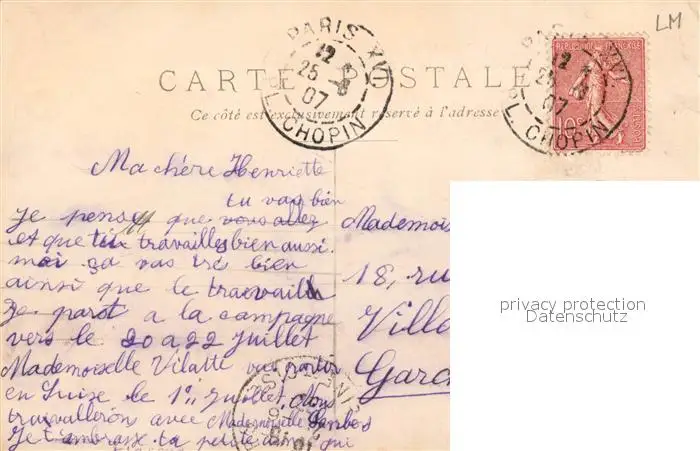 LM
PARIS XVI
12
25
07
PL. CHOPIN
PARIS XVI
12
25
07
PL. CHOPIN
REPUBLIQUE FRANÇAISE
10c
CARTE POSTALE
Ce côté est exclusivement réservé à l'adresse
Ma chère Henriette
tu vas bien
je pense que vous allez
et que tu travailles bien aussi.
moi ça vas tré bien
ainsi que le travaill
Je parot a la campagne
vers le 20 a 22 juillet
Mademoiselle Vilatte va partir
en Suise le 1er juillet. Nous
travailleron avec Mademoiselle
Je t'ambrasse ta petite amie qui
Mademois
18, ru
Ville
Garc
privacy protection
Datenschutz